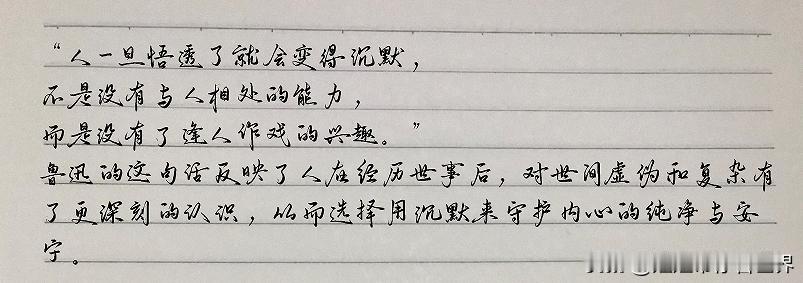 “人一旦悟透了就会变得沉默，
不是没有与人相处的能力，
而是没有了逢人作戏的兴趣。”
鲁迅的这句话反映了人在经历世事后，对世间虚伪和复杂有
了更深刻的认识，从而选择用沉默来守护内心的纯净与安
宁。